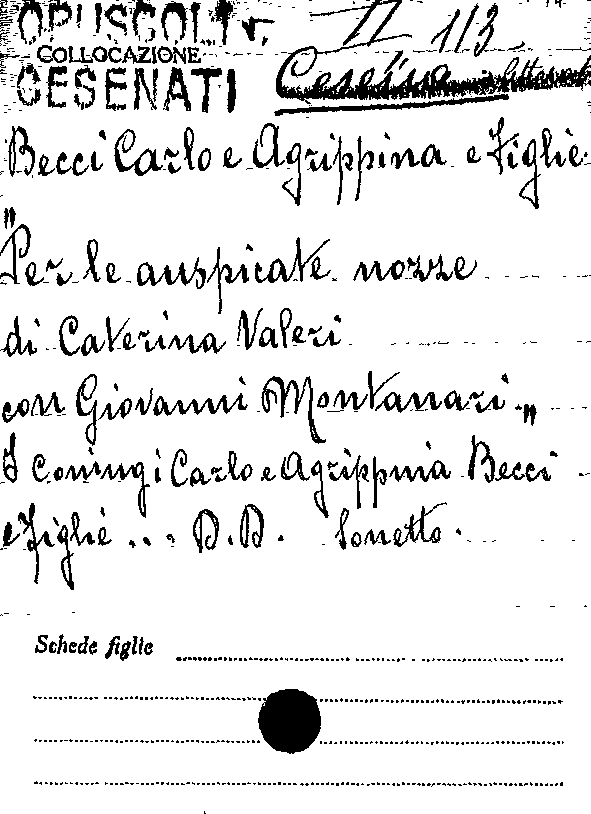 OPUSCOLI r. II 113
COLLOCAZIONE
CESENATI Cesena
Becci Carlo e Agrippina e Figlie.
"Per le auspicate nozze
di Caterina Valeri
con Giovanni Montanari."
I coniugi Carlo e Agrippina Becci
e Figlie ... D.D. Sonetto.
Schede figlie